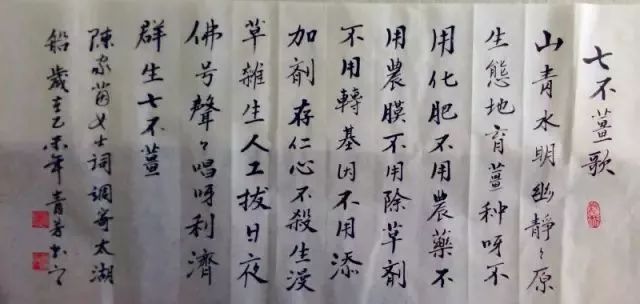 七不薑歌
山青水明幽靜々原
生態地育薑种呀不
用化肥不用農藥不
用農膜不用除草剂
不用轉基因不用添
加劑存仁心不殺生漫
草雜生人工拔日夜
佛号聲々唱呀利濟
群生七不薑
陳家茵女士詞調寄太湖
船歲吉乙未年青芳书